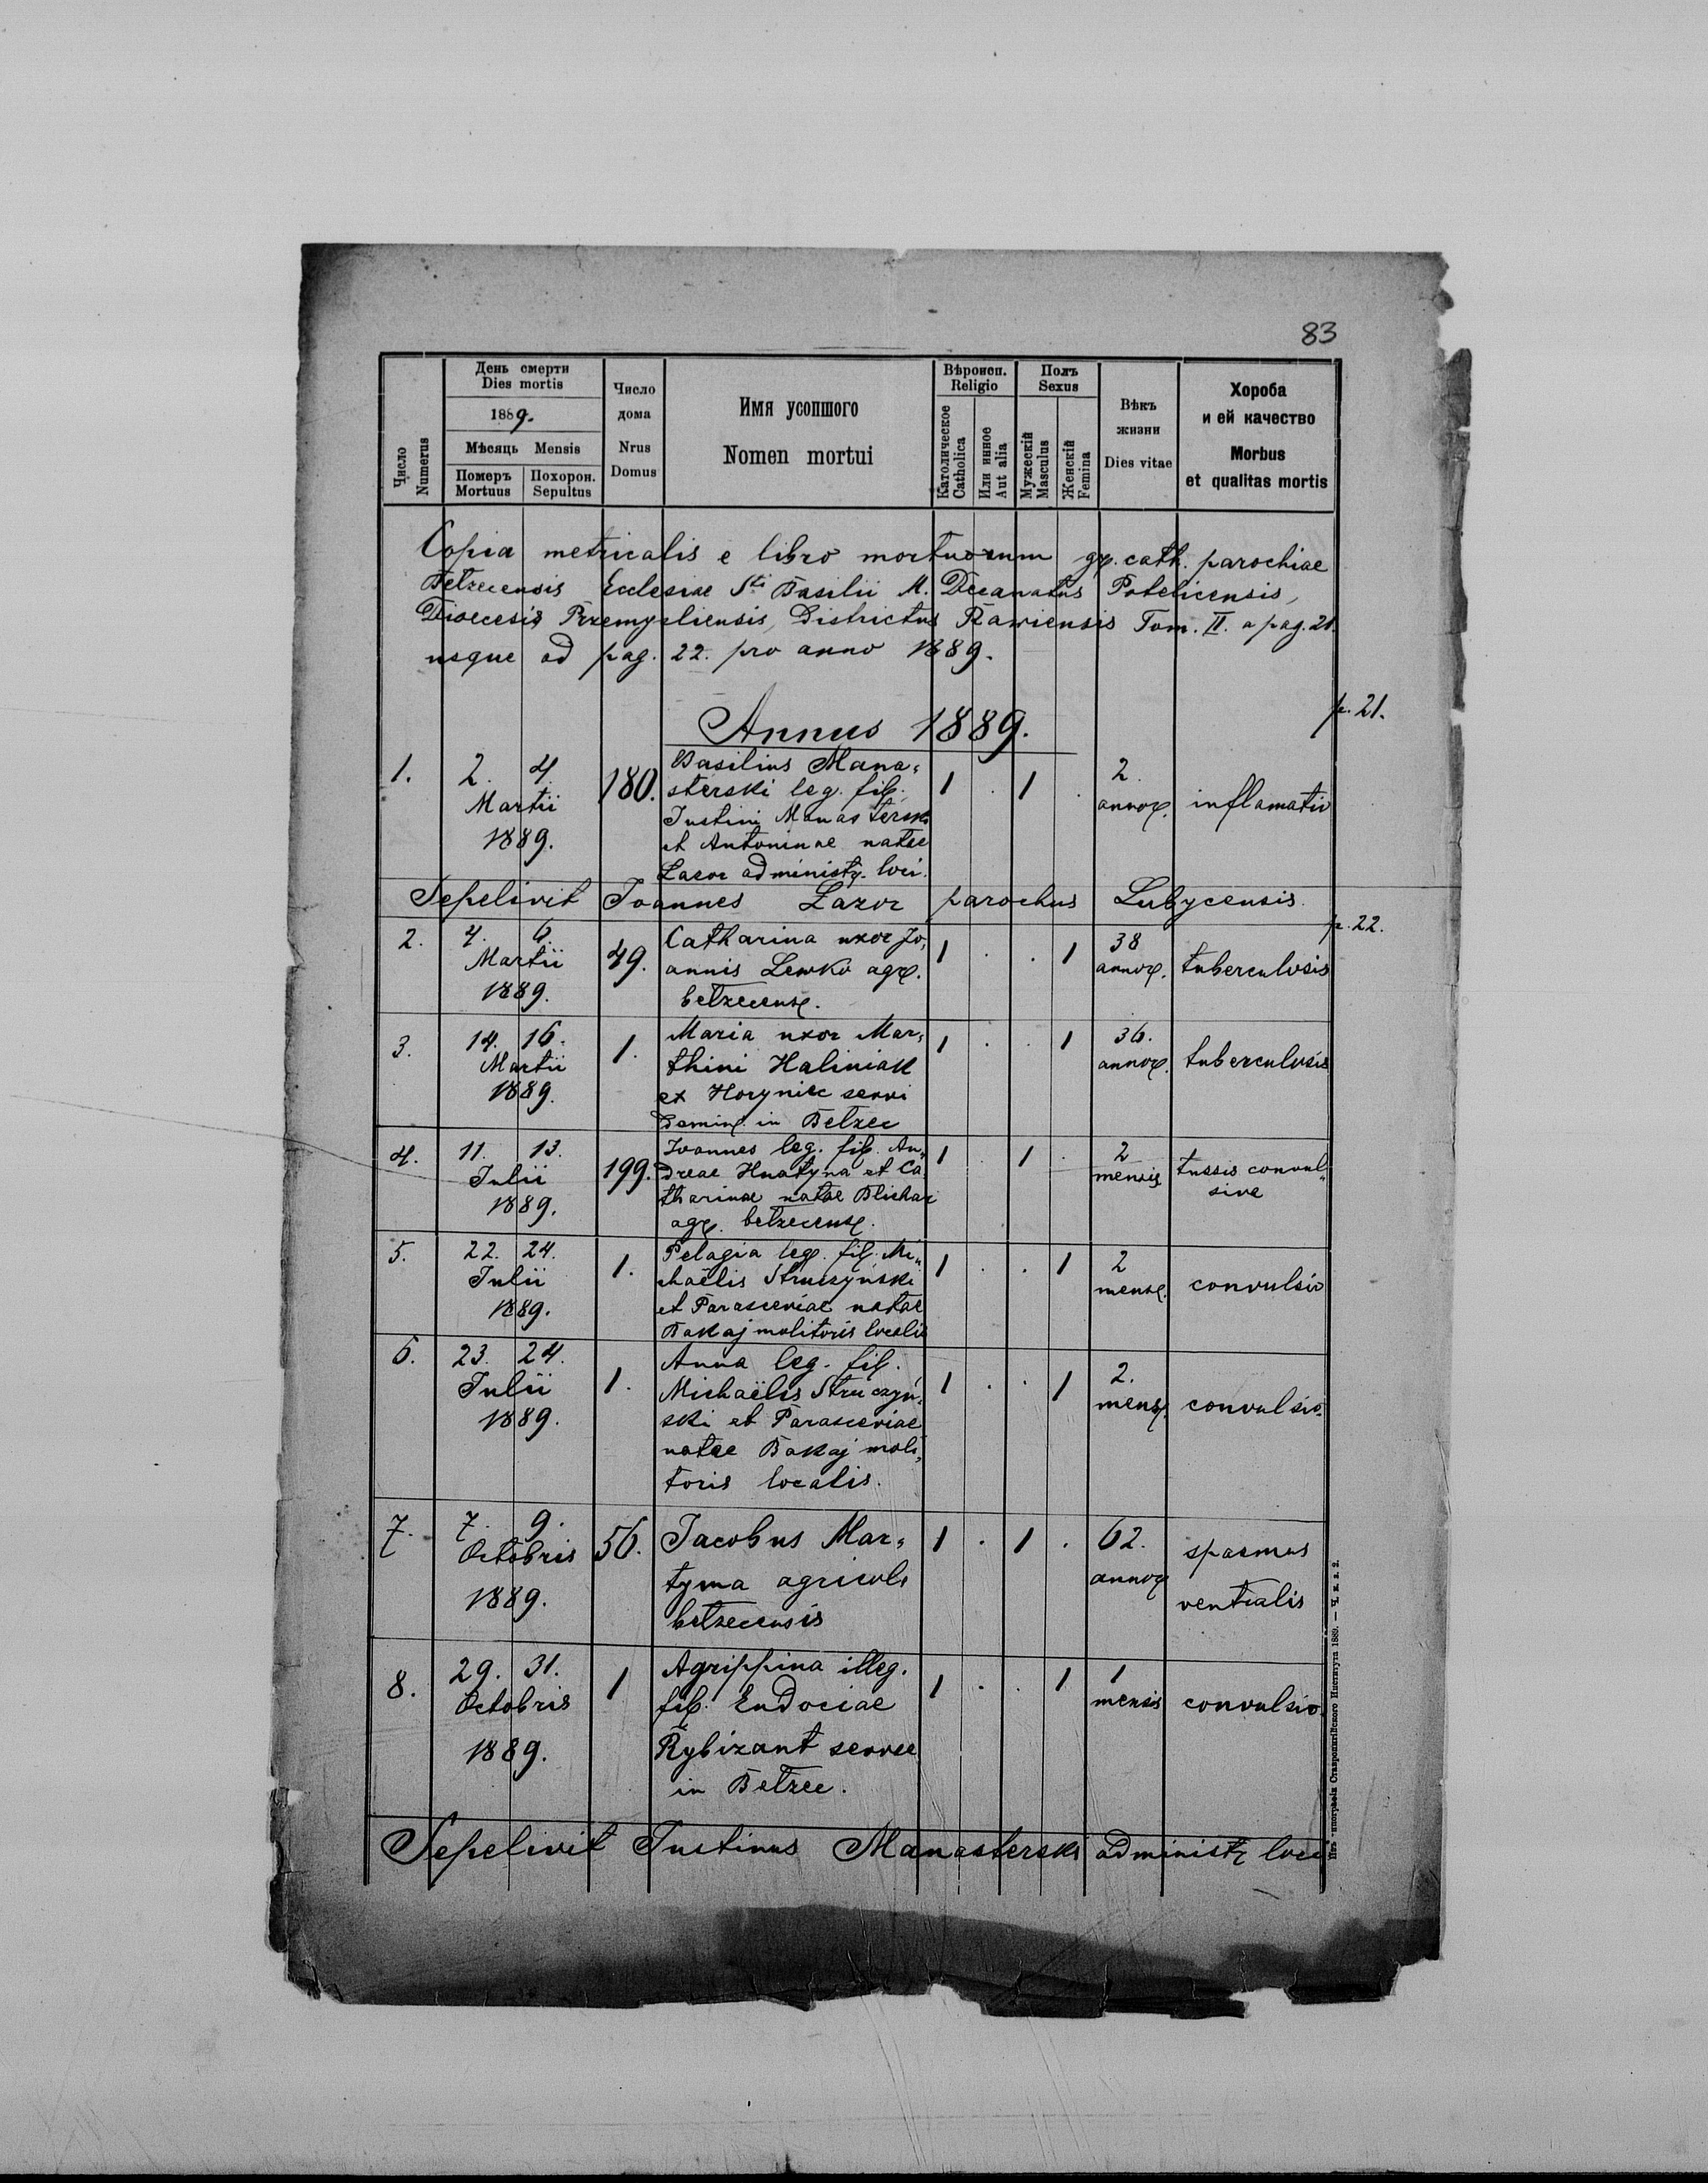 83
День смерти
Dies mortis
1889.
Мѣсяць Mensis
Померъ
Mortuus
Похорон.
Sepultus
Число
Numerus
Число
дома
Nrus
Domus
Имя усопшого
Nomen mortui
Вѣроисп.
Religio
Католическое
Catholica
Или инное
Aut alia
Полъ
Sexus
Мужескій
Masculus
Женскій
Femina
Вѣкъ
жизни
Dies vitae
Хороба
и ей качество
Morbus
et qualitas mortis
Copia metricalis e libro mortuorum gr. cath. parochiae
Betzecensis Ecclesiae Sti Basilii M. Decanatus Potelicensis,
Dioecesis Przemysliensis, Districtus Rawiensis Tom. II. a pag. 21.
usque ad pag. 22. pro anno 1889.
p. 21.
Annus 1889.
1. 2. 4. 180. Basilius Mana- 1 . 1 . 2.
Martii sterski leg. fil. annor. inflamatio
1889. Justini Manasterski
et Antoninae natae
Lazor administr. loci.
Sepelivit Joannes Lazor parochus Lubycensis.
p. 22.
2. 4. 6. 49. Catharina uxor Jo- 1 . . 1 38
Martii annis Lewko agr. annor. tuberculosis
1889. betzecens.
3. 14. 16. 1. Maria uxor Mar- 1 . . 1 36.
Martii thini Haliniak annor. tuberculosis
1889. ex Horyniec servi
Domin. in Betzec
4. 11. 13. 199. Joannes leg. fil. An- 1 . 1 . 2
Julii dreae Hnatyna et Ca mensis tussis convul-
1889. tharinae natae Blichar sive
agr. betzecens.
5. 22. 24. 1. Pelagia leg. fil. Mi- 1 . . 1 2
Julii chaëlis Struczyński mens. convulsio
1889. et Parasceviae natae
Bakaj molitoris localis
6. 23. 24. 1. Anna leg. fil. 1 . . 1 2.
Julii Michaëlis Struczyń- mens. convulsio.
1889. ski et Parasceviae
natae Bakaj moli-
toris localis.
7. 7. 9. 56. Jacobus Mar- 1 . 1 . 62. spasmus
Octobris tyma agricola annor ventralis
1889. betzecensis
8. 29. 31. 1 Agrippina illeg. 1 . . 1 1
Octobris fil. Eudociae mensis convulsio.
1889. Rybizant servae
in Betzec.
Sepelivit Justinus Manasterski administr loci
Изъ типографіи Ставропигійского Института 1889. — Ч. в. з. 2.